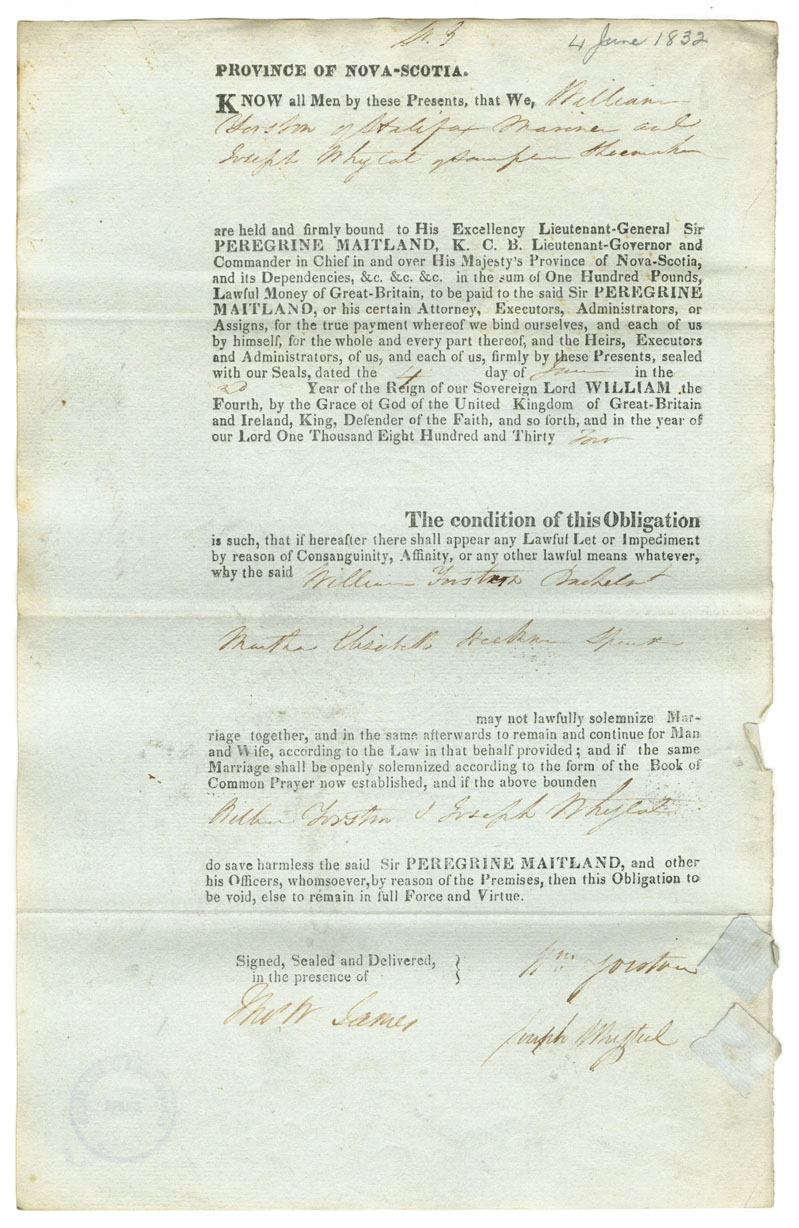 4 June 1832
PROVINCE OF NOVA-SCOTIA.
KNOW all Men by these Presents, that We, William
of Halifax Mariner and
Joseph Whytal of
are held and firmly bound to His Excellency Lieutenant-General Sir
PEREGRINE MAITLAND, K. C. B. Lieutenant-Governor and
Commander in Chief in and over His Majesty's Province of Nova-Scotia,
and its Dependencies, &c. &c. &c. in the sum of One Hundred Pounds,
Lawful Money of Great-Britain, to be paid to the said Sir PEREGRINE
MAITLAND, or his certain Attorney, Executors, Administrators, or
Assigns, for the true payment whereof we bind ourselves, and each of us
by himself, for the whole and every part thereof, and the Heirs, Executors
and Administrators, of us, and each of us, firmly by these Presents, sealed
with our Seals, dated the 4 day of June in the
2d Year of the Reign of our Sovereign Lord WILLIAM the
Fourth, by the Grace of God of the United Kingdom of Great-Britain
and Ireland, King, Defender of the Faith, and so forth, and in the year of
our Lord One Thousand Eight Hundred and Thirty Two
The condition of this Obligation
is such, that if hereafter there shall appear any Lawful Let or Impediment
by reason of Consanguinity, Affinity, or any other lawful means whatever,
why the said William Bachelor
Martha Elisabeth
may not lawfully solemnize Mar-
riage together, and in the same afterwards to remain and continue for Man
and Wife, according to the Law in that behalf provided; and if the same
Marriage shall be openly solemnized according to the form of the Book of
Common Prayer now established, and if the above bounden
Joseph Whytal
do save harmless the said Sir PEREGRINE MAITLAND, and other
his Officers, whomsoever, by reason of the Premises, then this Obligation to
be void, else to remain in full Force and Virtue.
Signed, Sealed and Delivered,
in the presence of
Wm Yorston
Thos W James
Joseph Whytal